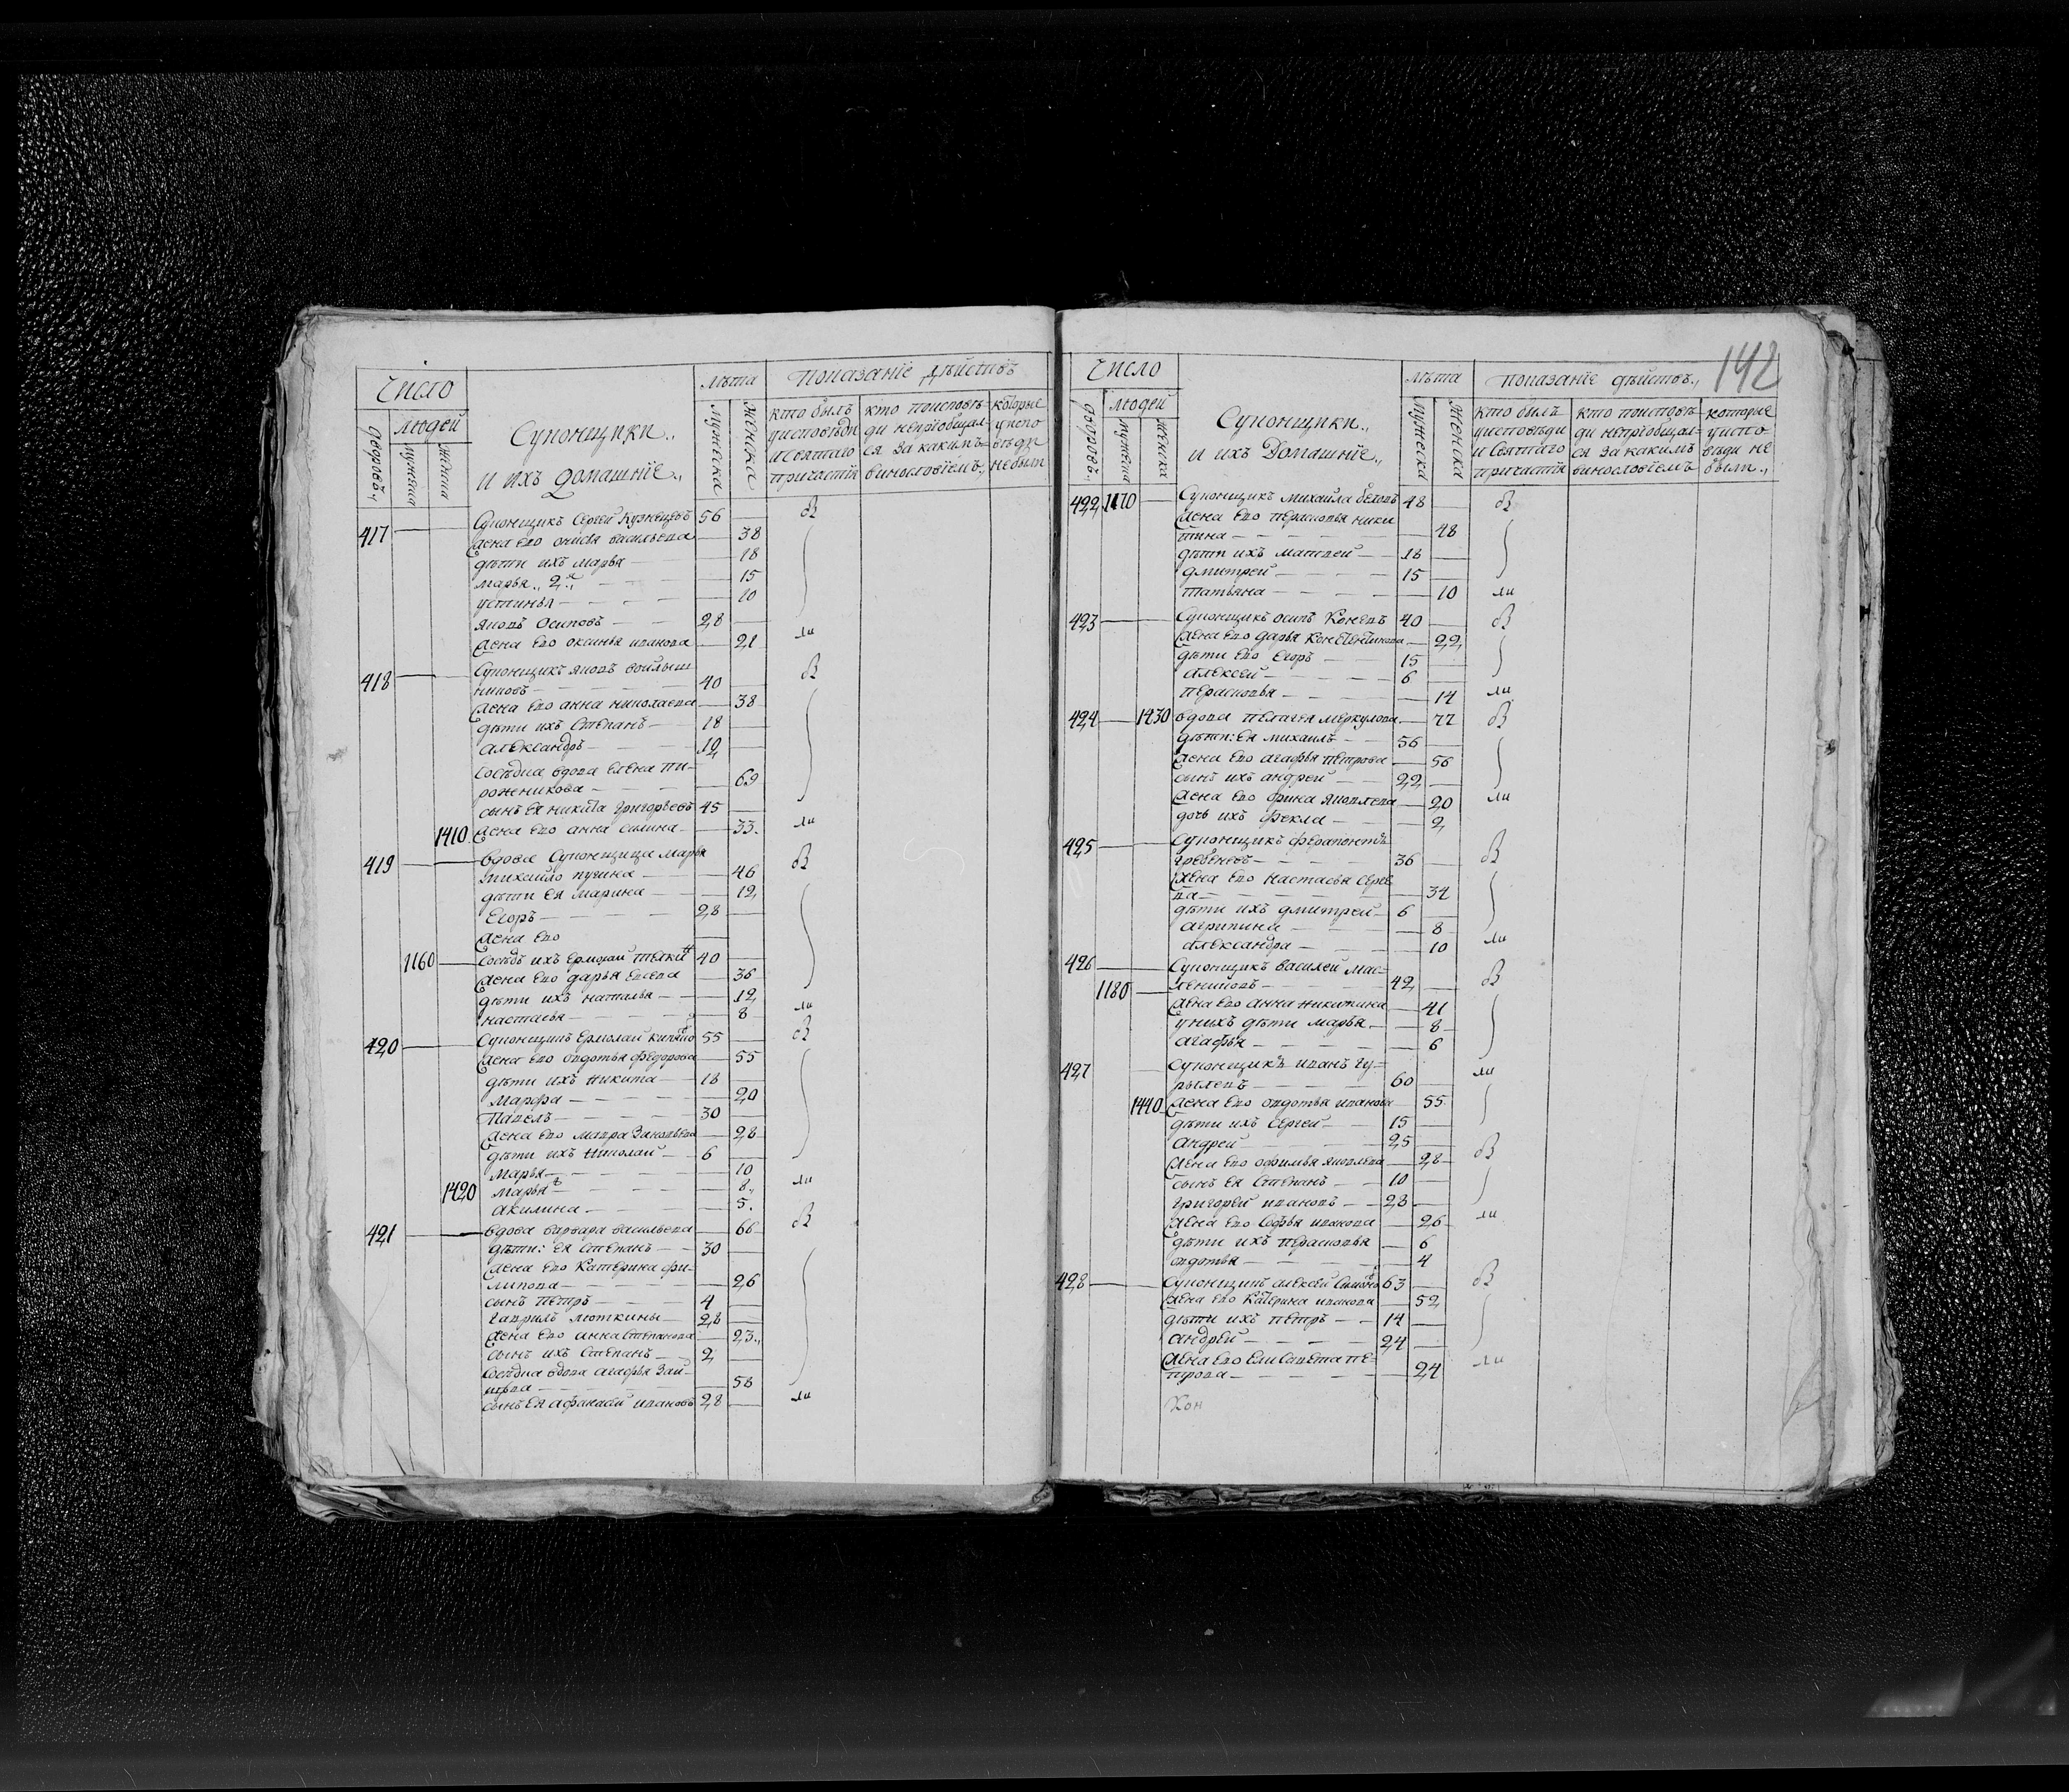 Число
людей
дворовъ
мужеска
женска
Суконщики
и ихъ домашнїе
лѣта
мужеска
женска
показанїе дѣйствъ
кто былъ
уисповѣди
и Святаго
причастїя
кто поисповѣ-
ди непрїобщал-
ся за какимъ
винословїемъ
которые
уиспо
вѣди
небыли
417 Суконщикъ Сергей Кузнецовъ 56
жена ево васильева 38
дѣти ихъ марья 18
марья 2я 15
устинья 10
яковъ Осиповъ 28
жена ево оксинья иванова 21
418 Суконщикъ яковъ
никовъ 40
жена ево анна николаева 38
дѣти ихъ Степанъ 18
александръ 12
Сосѣдка вдова елена пи-
роженикова 69
сынъ ея никита григорьевъ 45
1410 жена ево анна силина 33
419 вдова Суконщица марья
михайло 46
дѣти ея марина 12
Егоръ 28
жена ево
1160 Сосѣдъ ихъ Ермолай 40
жена ево дарья 36
дѣти ихъ наталья 12
настасья 8
420 Суконщикъ Ермолай 55
жена ево овдотья федорова 55
дѣти ихъ никита 18
марфа 20
павелъ 30
жена ево мавра 28
дѣти ихъ николай 6
марья 10
1420 марья 8
акилина 5
421 вдова варвара васильева 66
дѣти: ея Степанъ 30
жена ево Катерина фи-
липова 26
сынъ петръ 4
гаврилъ люткины 28
жена ево анна степанова 23
сынъ ихъ Степанъ 2
Сосѣдка вдова агафья Зай-
цова 58
сынъ ея афанасей ивановъ 28
142
Число
людей
дворовъ
мужеска
женска
Суконщики
и ихъ Домашнїе
лѣта
мужеска
женска
показанїе дѣйствъ
кто былъ
уисповѣди
и Святаго
причастїя
кто поисповѣ-
ди непрїобщал-
ся за какимъ
винословїемъ
которые
уиспо
вѣди не
были
422 1170 Суконщикъ михайла 48
жена ево перасковья ники
тина 48
дѣти ихъ матвей 18
дмитрей 15
татьяна 10
423 Суконщикъ осипъ 40
жена ево дарья Констентинова 22
дѣти ево Егоръ 15
алексей 6
перасковья 14
424 1430 вдова пелагея меркулова 77
дѣти: ея михаилъ 56
жена ево агафья петрова 56
сынъ ихъ андрей 22
жена ево орина яковлева 20
дочь ихъ фекла 2
425 Суконщикъ ферапонтъ
гребеневъ 36
жена ево настасья сергее
ва 34
дѣти ихъ дмитрей 6
агрипина 8
александра 10
426 Суконщикъ василей мас-
1180 лениковъ 42
жена ево анна никитина 41
унихъ дѣти марья 8
агафья 6
427 Суконщикъ иванъ гу-
рылевъ 60
1440 жена ево овдотья иванова 55
дѣти ихъ Сергей 15
андрей 25
жена ево офимья яковлева 28
сынъ ея Степанъ 10
григорей ивановъ 28
жена ево Софья иванова 26
дѣти ихъ перасковья 6
овдотья 4
428 Суконщикъ алексей 63
жена ево Катерина иванова 52
дѣти ихъ петръ 14
андрей 24
жена ево Елисавета пе-
трова 24